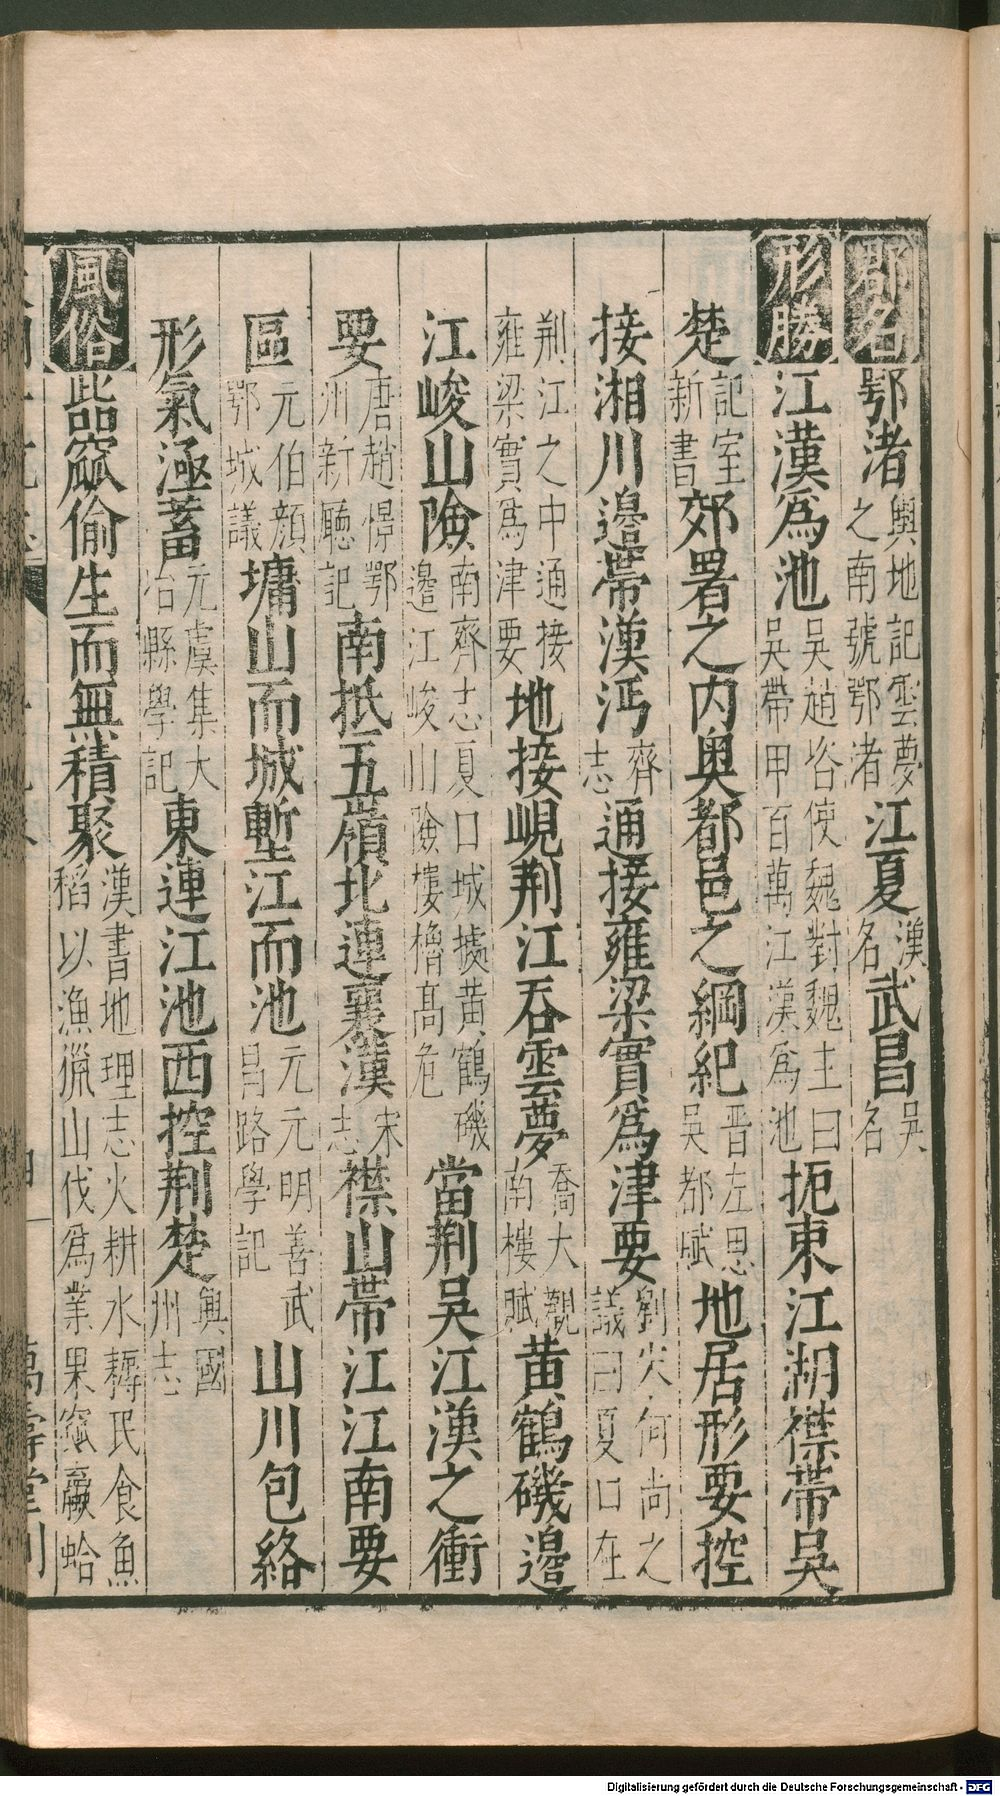 郡名鄂渚輿地記雲夢之南號鄂渚江夏漢名武昌吳名
形勝江漢爲池吳趙咨使魏對魏主曰吳帶甲百萬江漢爲池扼束江湖襟帶吳
楚記室新書郊署之内奥都邑之綱紀晋左思吳都賦地居形要控
接湘川邉帶漢沔齊志通接雍梁實爲津要劉宋何尚之議曰夏口在
荆江之中通接雍梁實爲津要地接峴荆江吞雲夢喬大觀南樓賦黄鶴磯邉
江峻山險南齊志夏口城據黄鶴磯邉江峻山險樓櫓髙危當荆吳江漢之衝
要唐趙憬鄂州新廳記南抵五嶺北連襄漢宋志襟山帶江江南要
區元伯顔鄂城議墉山而城塹江而池元元明善武昌路學記山川包絡
形氣亟蓄元虞集大冶縣學記東連江池西控荆楚興國州志
風俗呰窳偷生而無積聚漢書地理志火耕水耨民食魚稻以漁獵山伐爲業果窳蠃蛤
萬壽堂刊
Digitalisierung gefördert durch die Deutsche Forschungsgemeinschaft - DFG